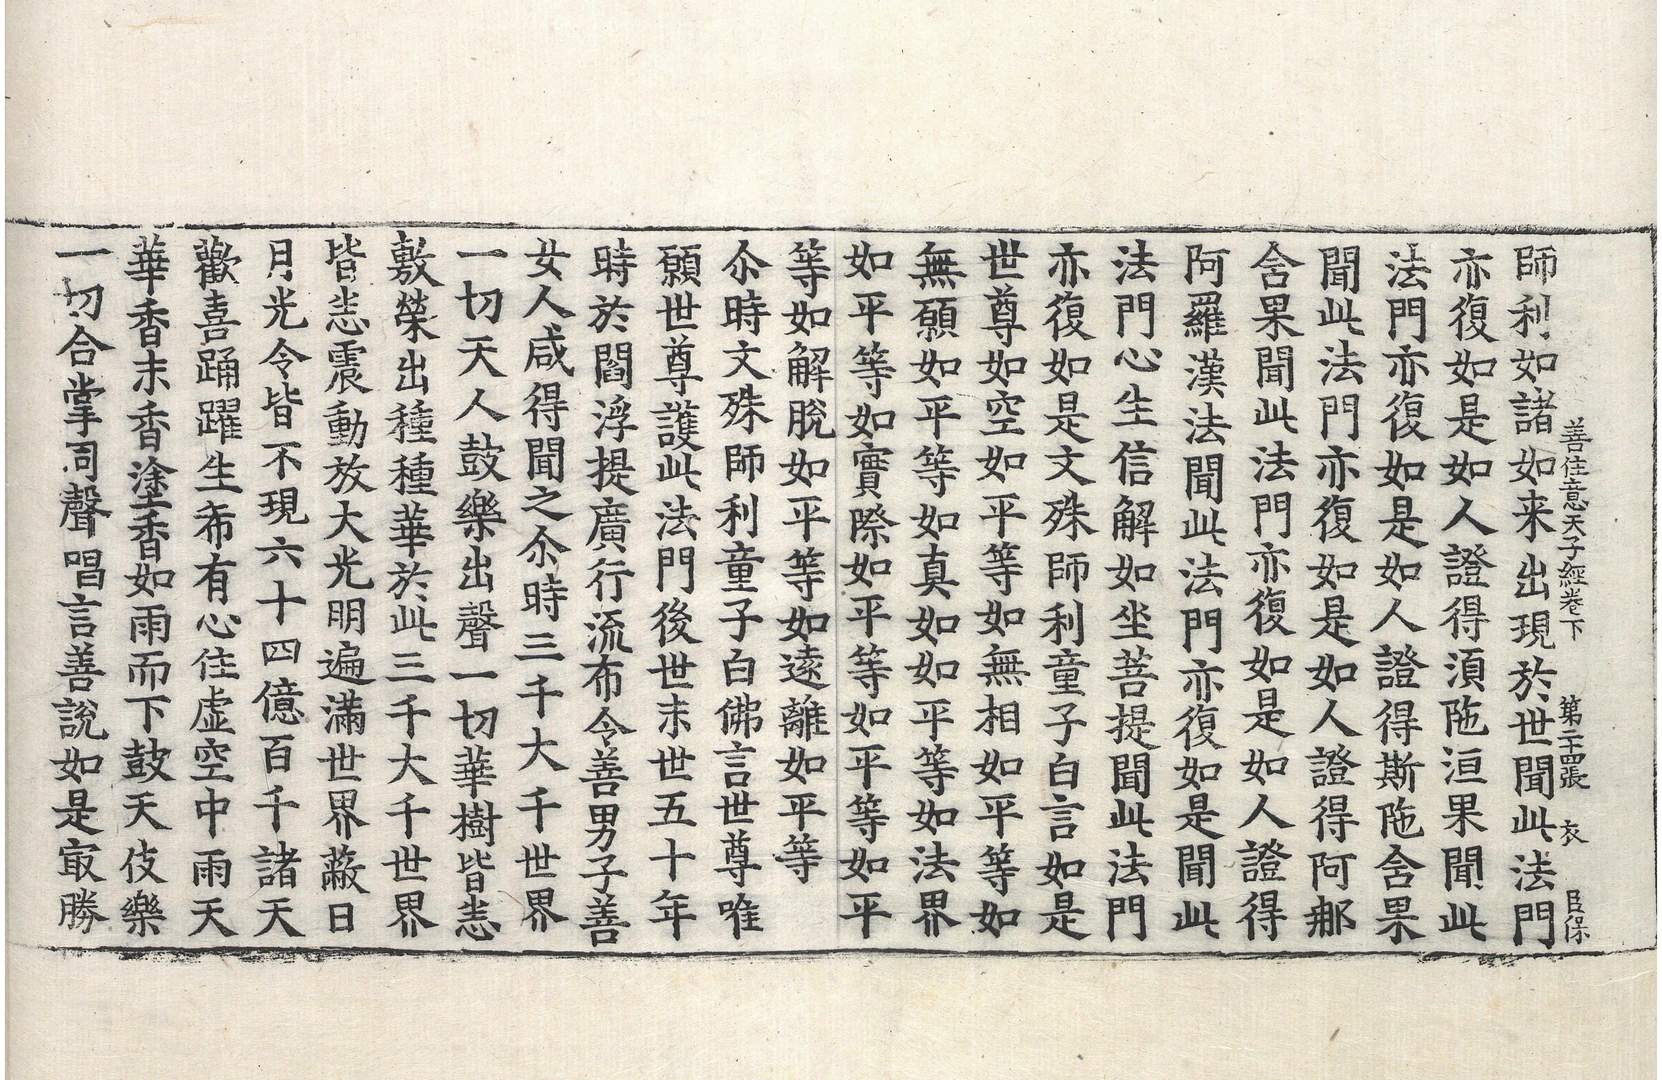 善住意天子經卷下 第二十四張 衣 臣保
師利如諸如来出現於世聞此法門
亦復如是如人證得湏陁洹果聞此
法門亦復如是如人證得斯陁舍果
聞此法門亦復如是如人證得阿那
舍果聞此法門亦復如是如人證得
阿羅漢法聞此法門亦復如是聞此
法門心生信解如坐菩提聞此法門
亦復如是文殊師利童子白言如是
世尊如空如平等如無相如平等如
無願如平等如真如如平等如法界
如平等如實際如平等如平等如平
等如解脫如平等如遠離如平等
尒時文殊師利童子白佛言世尊唯
願世尊護此法門後世末世五十年
時於閻浮提廣行流布令善男子善
女人咸得聞之尒時三千大千世界
一切天人鼓樂出聲一切華樹皆悉
敷榮出種種華於此三千大千世界
皆悉震動放大光明遍滿世界蔽日
月光令皆不現六十四億百千諸天
歡喜踊躍生希有心住虛空中雨天
華香末香塗香如雨而下鼓天伎樂
一切合掌同聲唱言善說如是㝡勝